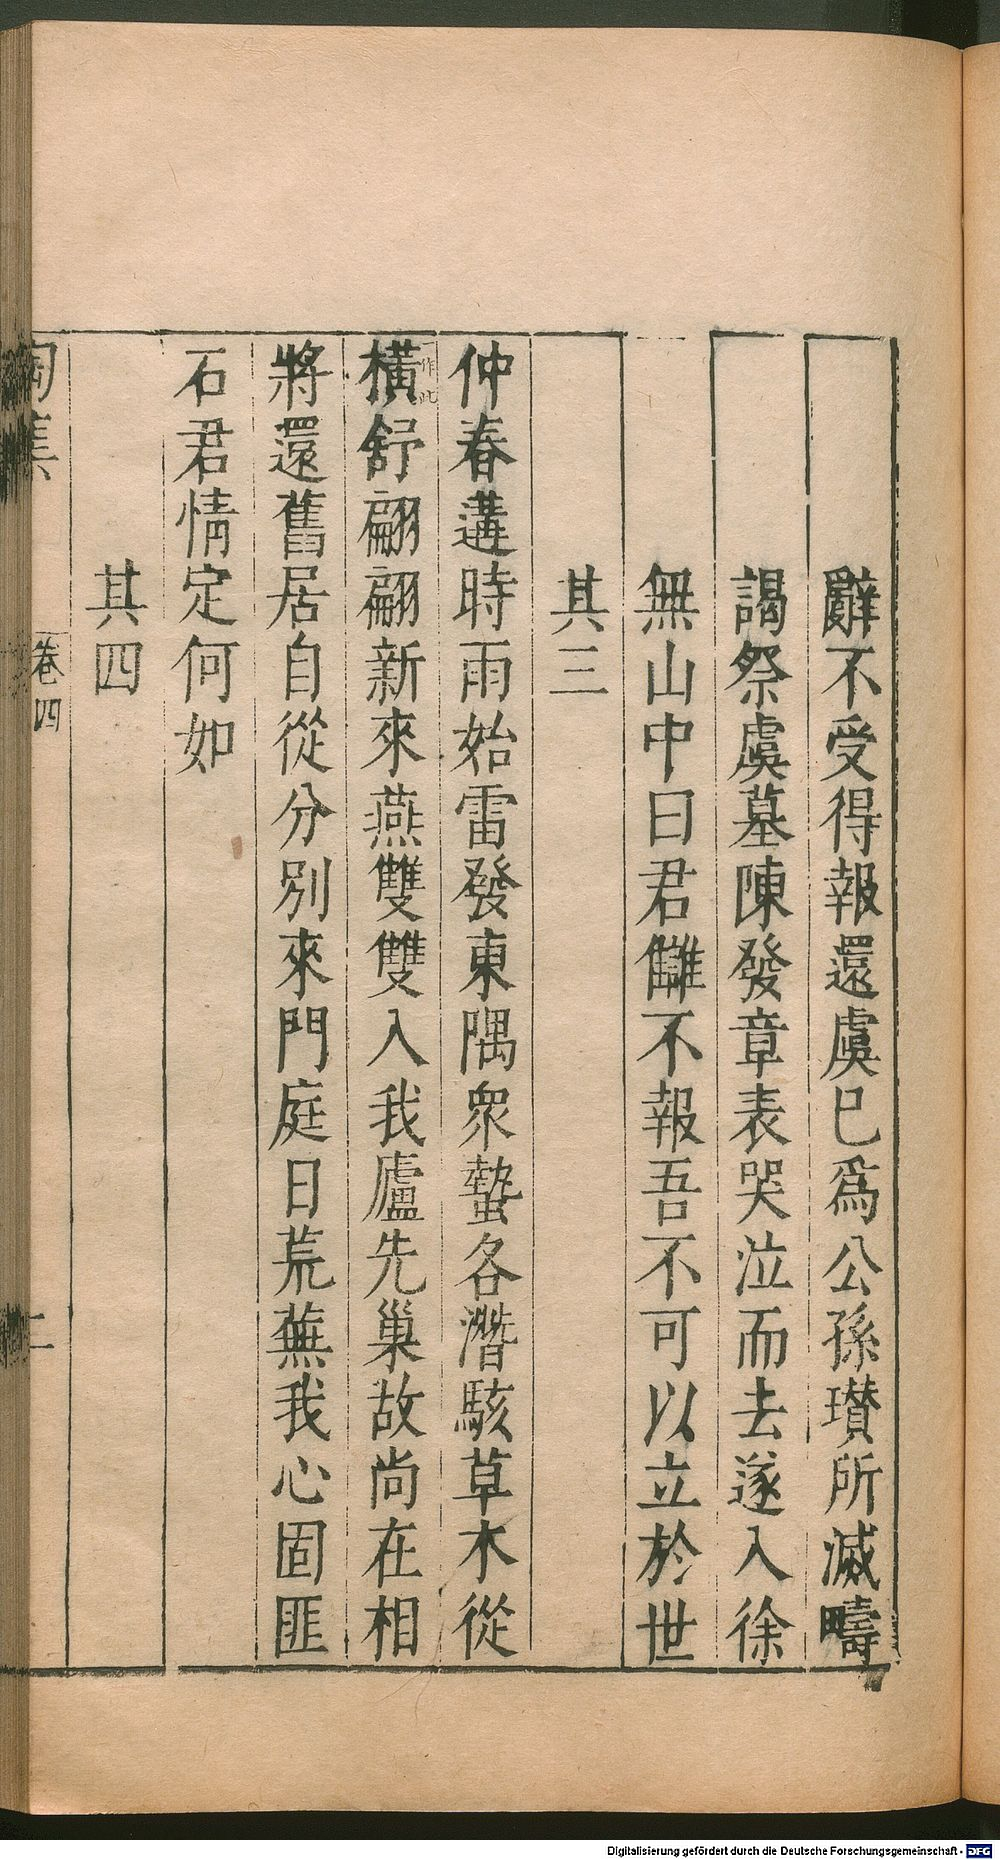 辭不受得報還虞巳爲公孫瓚所滅疇
謁祭虞墓陳發章表哭泣而去遂入徐
無山中曰君讎不報吾不可以立於世
其三
仲春遘時雨始雷發東隅衆蟄各潛駭草木從
一作此
橫舒翩翩新來燕雙雙入我廬先巢故尚在相
將還舊居自從分別來門庭日荒蕪我心固匪
石君情定何如
其四
陶集
卷四
二
Digitalisierung gefördert durch die Deutsche Forschungsgemeinschaft - DFG